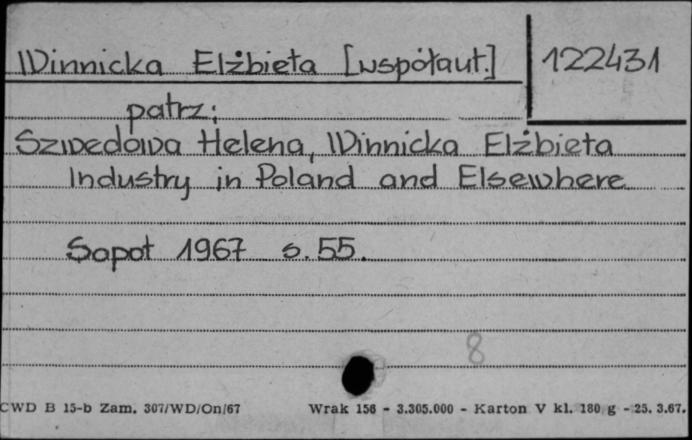 Winnicka Elżbieta [współaut.] 122431
patrz:
Szwedowa Helena, Winnicka Elżbieta
Industry in Poland and Elsewhere
Sopot 1967 s. 55.
8
CWD B 15-b Zam. 307/WD/On/67 Wrak 156 - 3.305.000 - Karton V kl. 180 g - 25. 3.67.